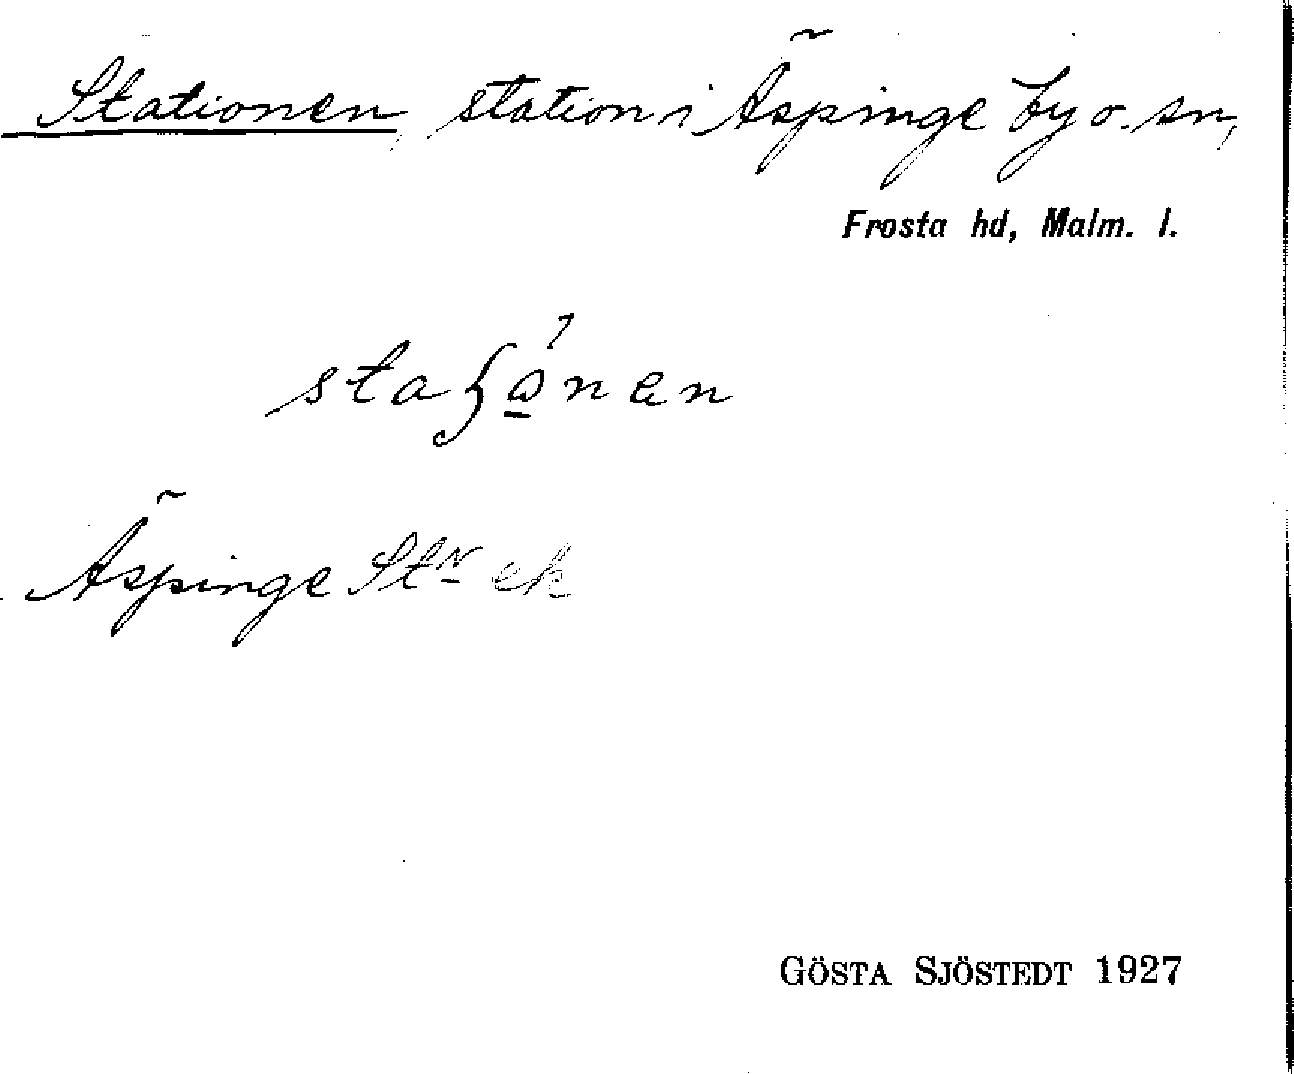 Stationen, station i Äspinge by o. sn,
Frosta hd, Malm. l.
Äspinge Stn ek
GÖSTA SJÖSTEDT 1927